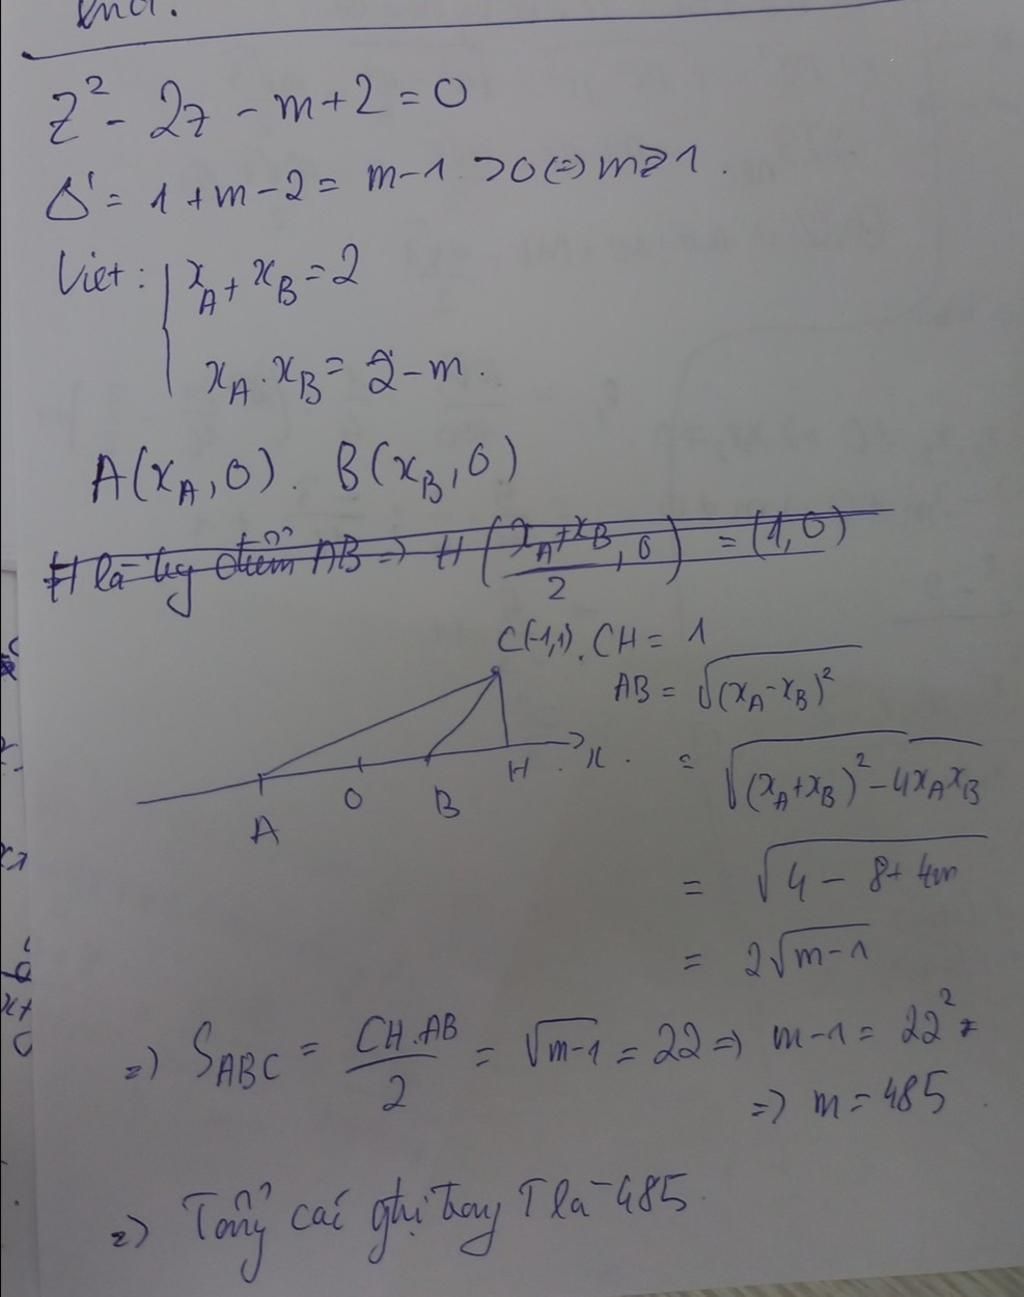 z² - 2z - m + 2 = 0
Δ' = 1 + m - 2 = m - 1 > 0 (=) m > 1.
Viet: { x_A + x_B = 2
x_A . x_B = 2 - m.
A(x_A, 0). B(x_B, 0)
H là trg điểm AB => H((x_A + x_B)/2, 0) = (1, 0)
C(-1,1). CH = 1
AB = √(x_A - x_B)²
A O B H x.
= √(x_A + x_B)² - 4x_A x_B
= √4 - 8 + 4m
= 2√m - 1
=) S_ABC = CH.AB/2 = √m-1 = 22 =) m - 1 = 22²
=> m = 485.
=) Tổng các ghị trong T là 485.